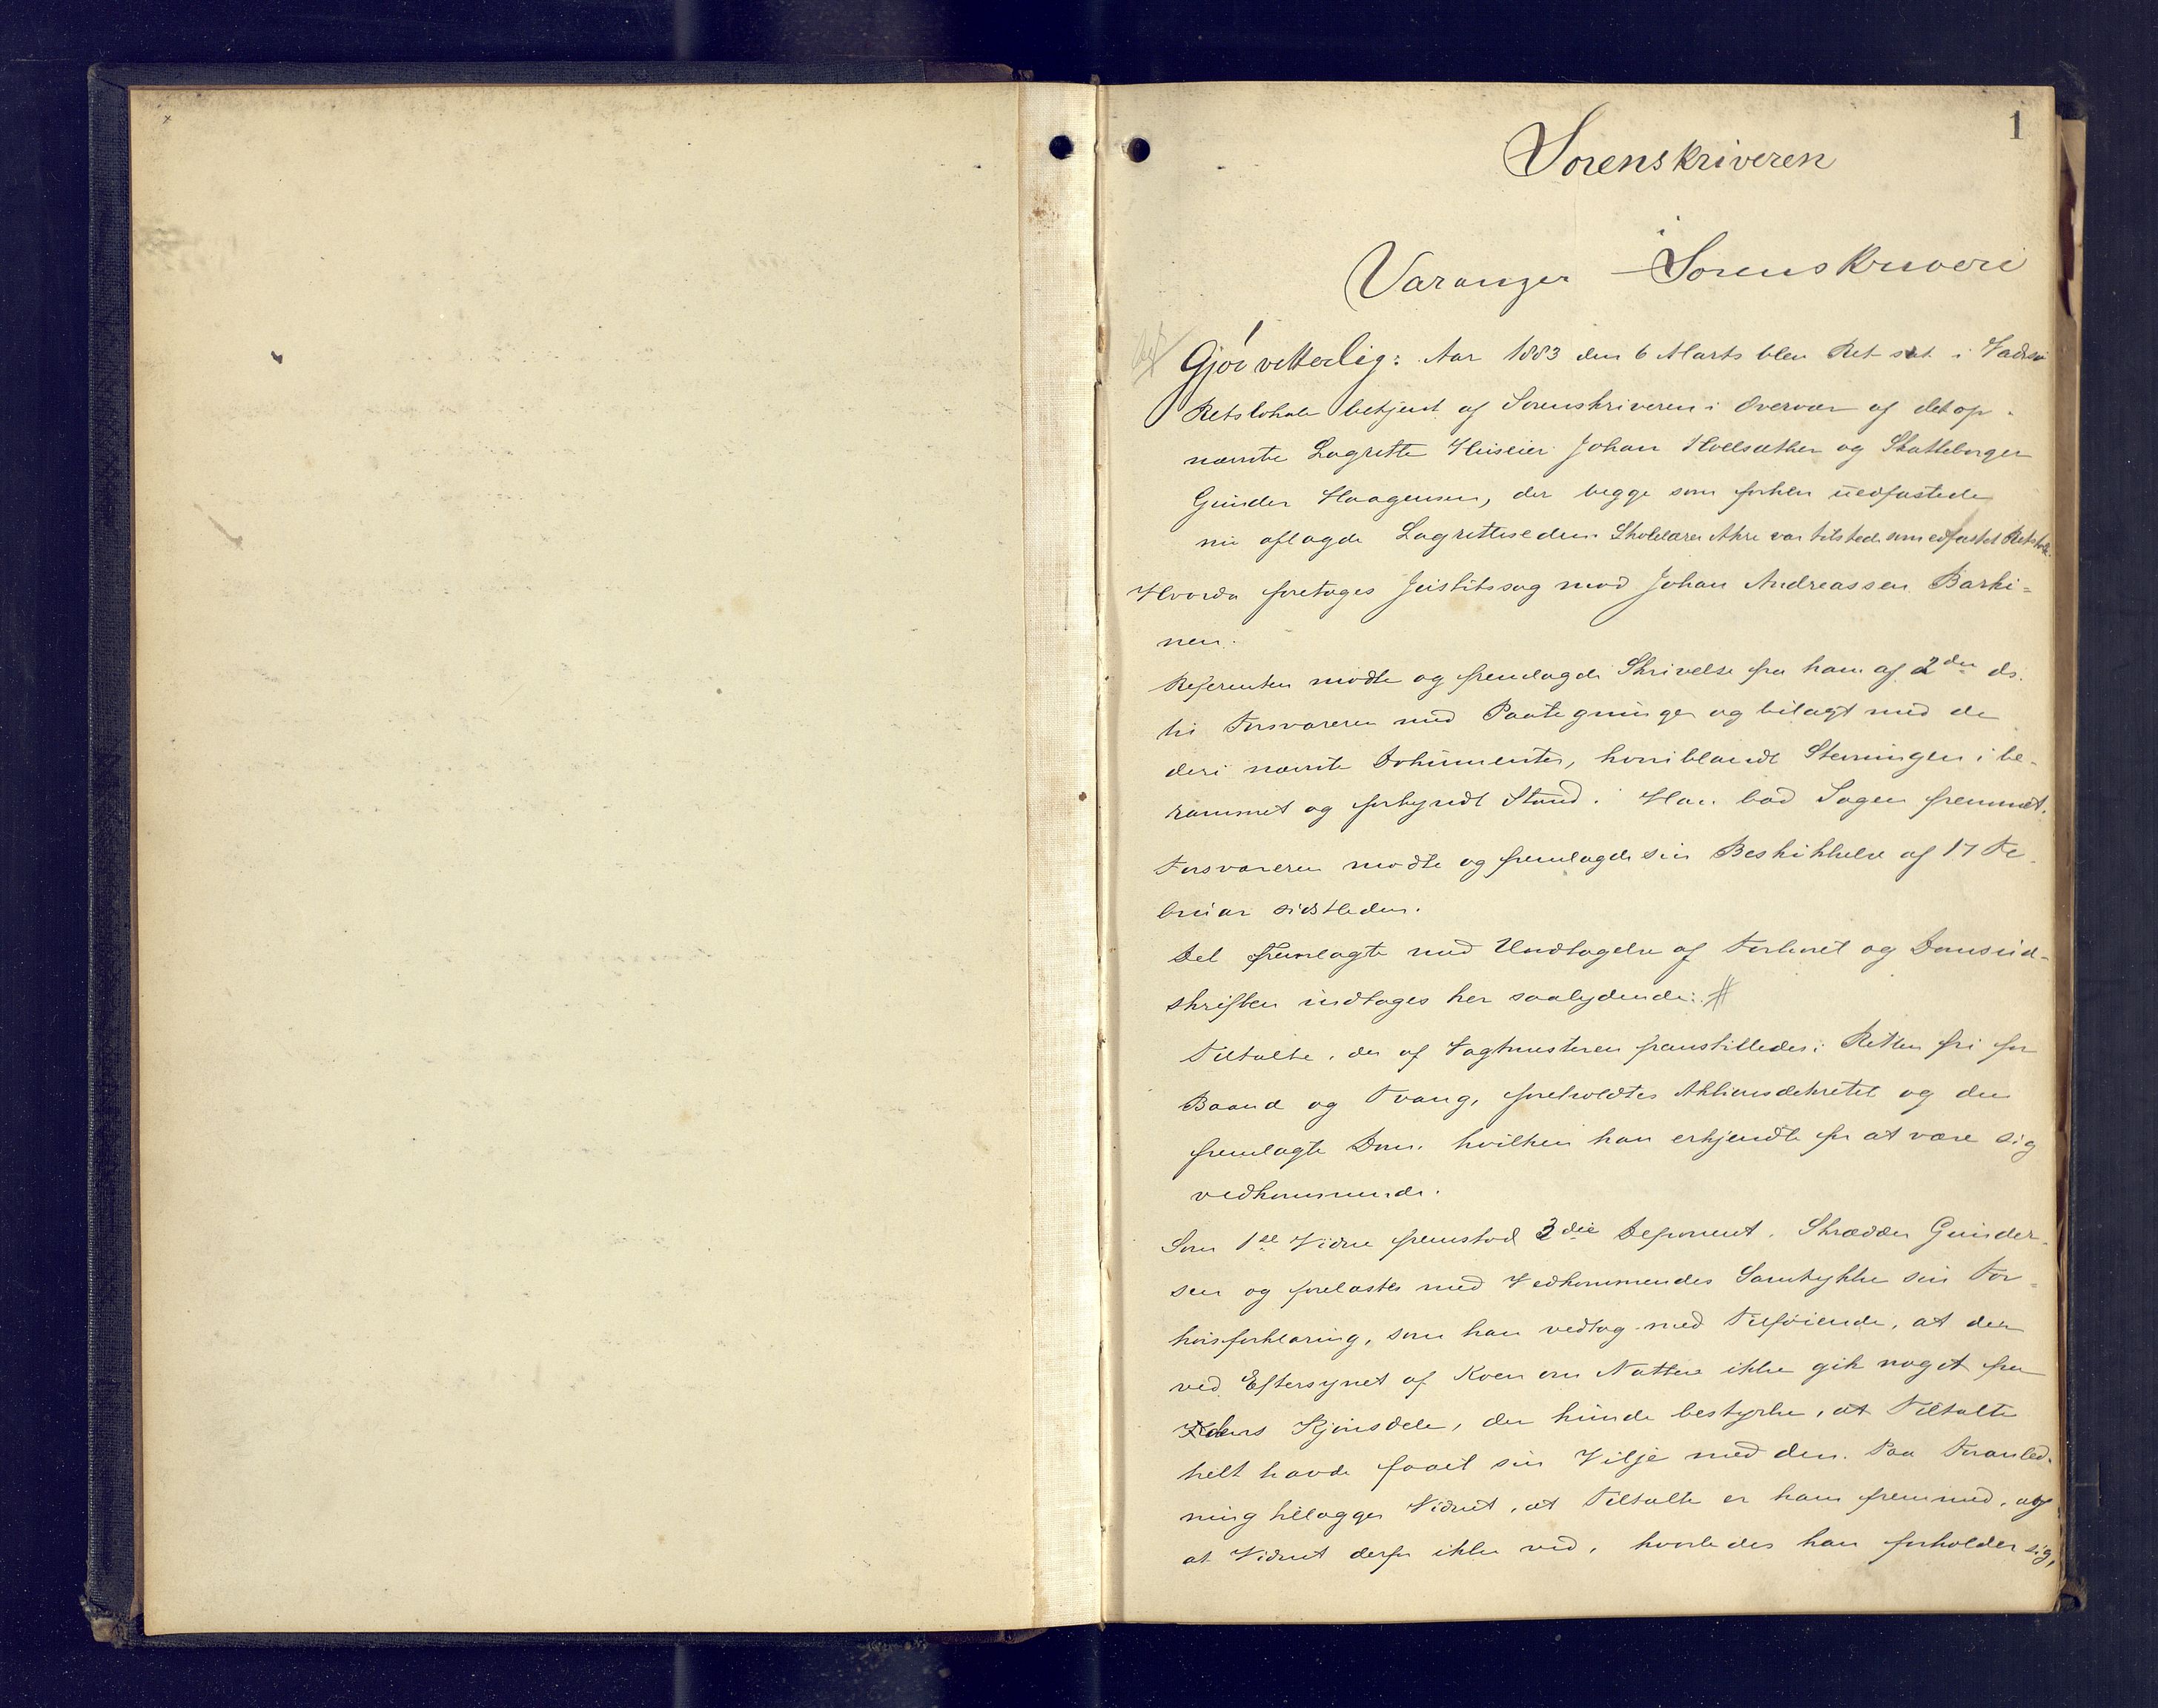 1
Sorenskriveren
i
Varanger Sorenskriveri
Gjör vitterlig: Aar 1883 den 6 Marts blev Ret sat i Vadsø
Retslokale betjent af Sorenskriveren i Overvær af det op-
nævnte Lagrette Huseier Johan Hvelsæther og Skatteborger
Gunder Haagensen, der begge som forhen uedfæstede
nu aflagde Lagretteseden. Skolelærer Akre var tilstede som edfæstet Retstolk.
Hvorda foretoges Justitssag mod Johan Andreassen Barki-
nen.
Referenten mødte og fremlagde Skrivelse fra ham af 2den ds.
til Forsvareren med Paategninger og bilagt med de
deri nævnte Dokumenter, horiblandt Stevningen i be-
rammet og forkyndt Stand. Han bad Sagen fremmet.
Forsvareren mødte og fremlagde sin Beskikkelse af 17 Fe-
bruar sidstleden.
Det fremlagte med Undtagelse af Forhøret og Domsud-
skriften indtages her saalydende: #
Tiltalte, der af Vagtmesteren fremstilledes i Retten fri for
Baand og Tvang, foreholdtes Aktionsdekretet og den
fremlagte Dom, hvilken han erkjendte for at være sig
vedkommende.
Som 1ste Vidne fremstod 3die Deponent, Skrædder Gunder-
sen og forelæstes med Vedkommendes Samtykke sin For-
hørsforklaring, som han vedtog med Tilføiende, at der
ved Eftersynet af Koen om Natten ikke gik noget fra
Koens Kjønsdele, der kunde bestyrke, at Tiltalte
helt havde faaet sin Vilje med den. Paa Foranled-
ning tillægger Vidnet, at Tiltalte er ham fremmed, og
at Vidnet derfor ikke ved, hvorledes han forholder sig,